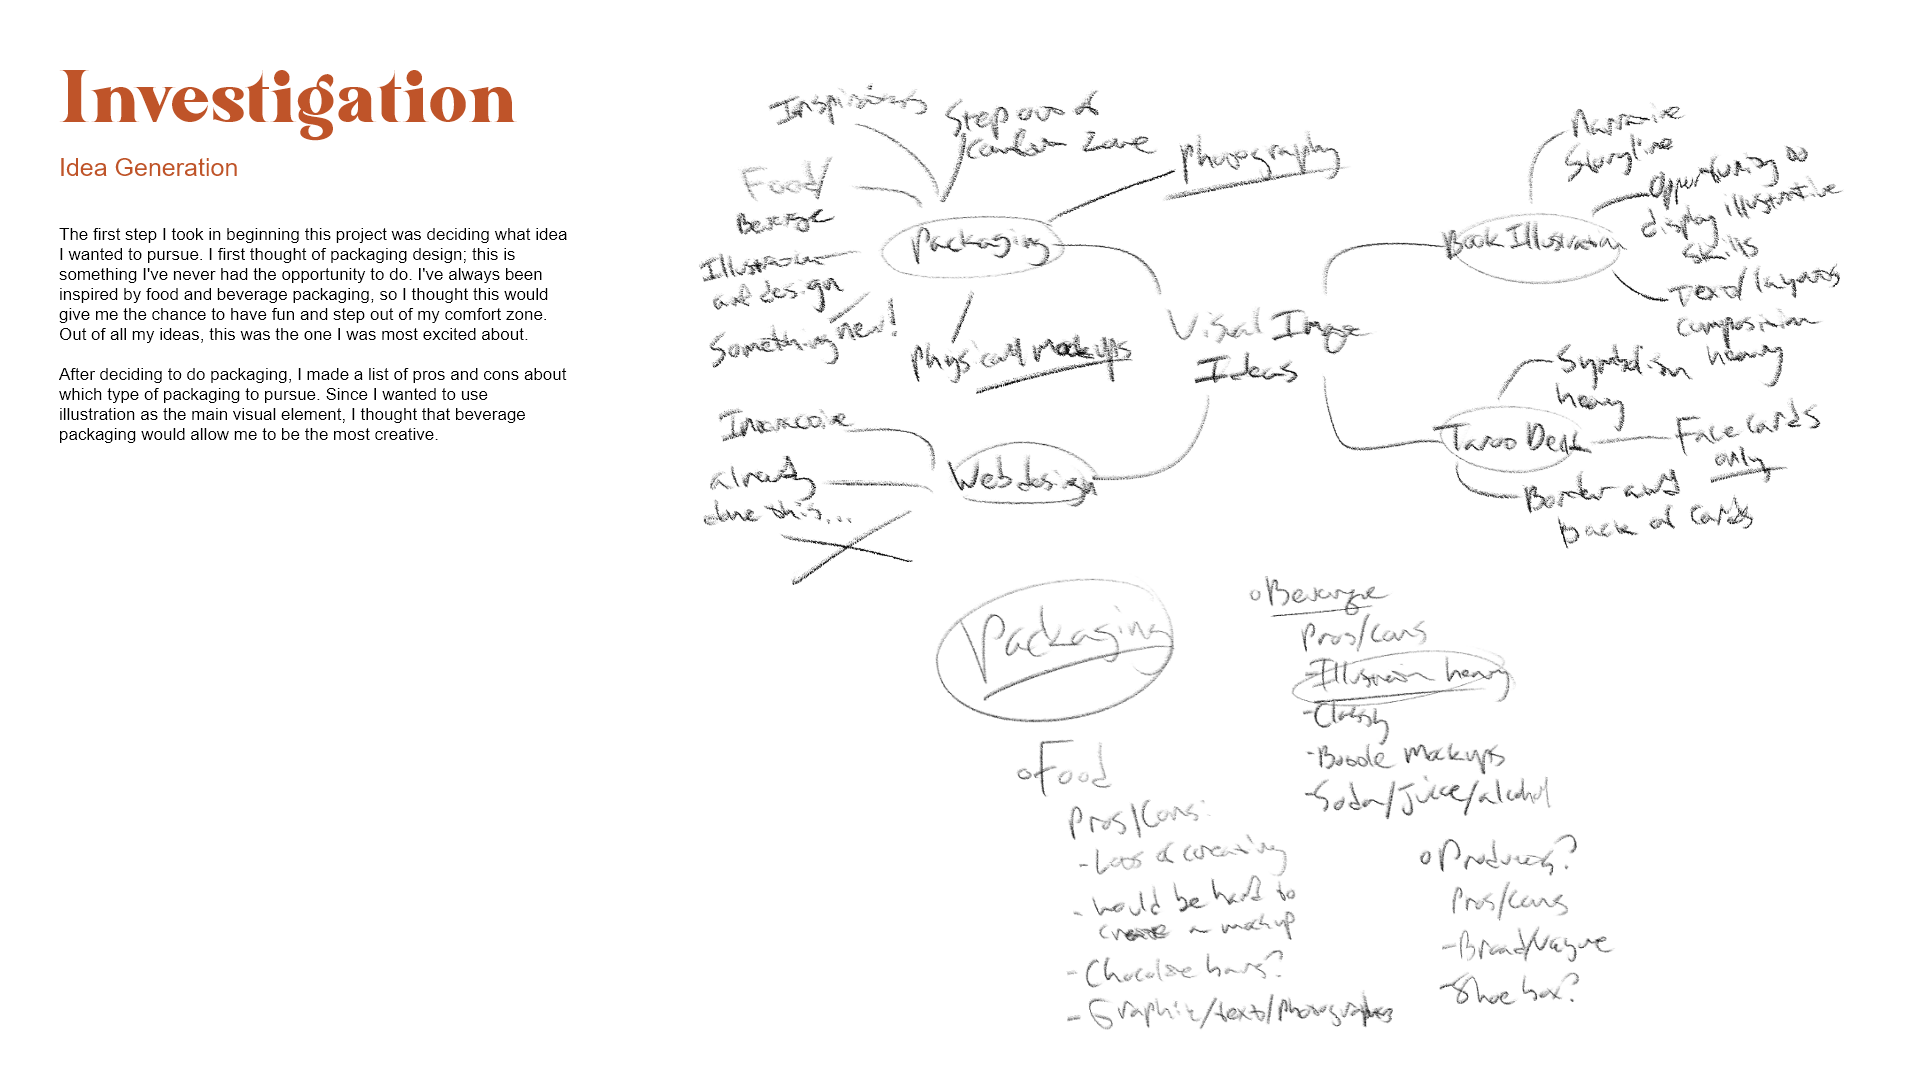 Investigation
Idea Generation
The first step I took in beginning this project was deciding what idea
I wanted to pursue. I first thought of packaging design; this is
something I've never had the opportunity to do. I've always been
inspired by food and beverage packaging, so I thought this would
give me the chance to have fun and step out of my comfort zone.
Out of all my ideas, this was the one I was most excited about.
After deciding to do packaging, I made a list of pros and cons about
which type of packaging to pursue. Since I wanted to use
illustration as the main visual element, I thought that beverage
packaging would allow me to be the most creative.
Step out of
comfort zone
Photography
Food/
Beverage
Packaging
Illustration
and design
Something new!
Physical mockups
Visual Image
Ideas
Interactive
already
done this...
Web design
Narrative
Storyline
Opportunity to
display illustrative
skills
Book Illustration
Text/layouts
composition
heavy
Symbolism
heavy
Tarot Deck
Face cards
only
Border and
back of cards
Packaging
Food
Pros/Cons:
- Lots of
- would be hard to
create a mockup
- Chocolate bars?
- Graphic/text/photography
Beverage
Pros/Cons
- Illustration heavy
- Classy
- Bottle mockups
- Soda/Juice/alcohol
Products?
Pros/Cons
- Broad/vague
- Shoe box?